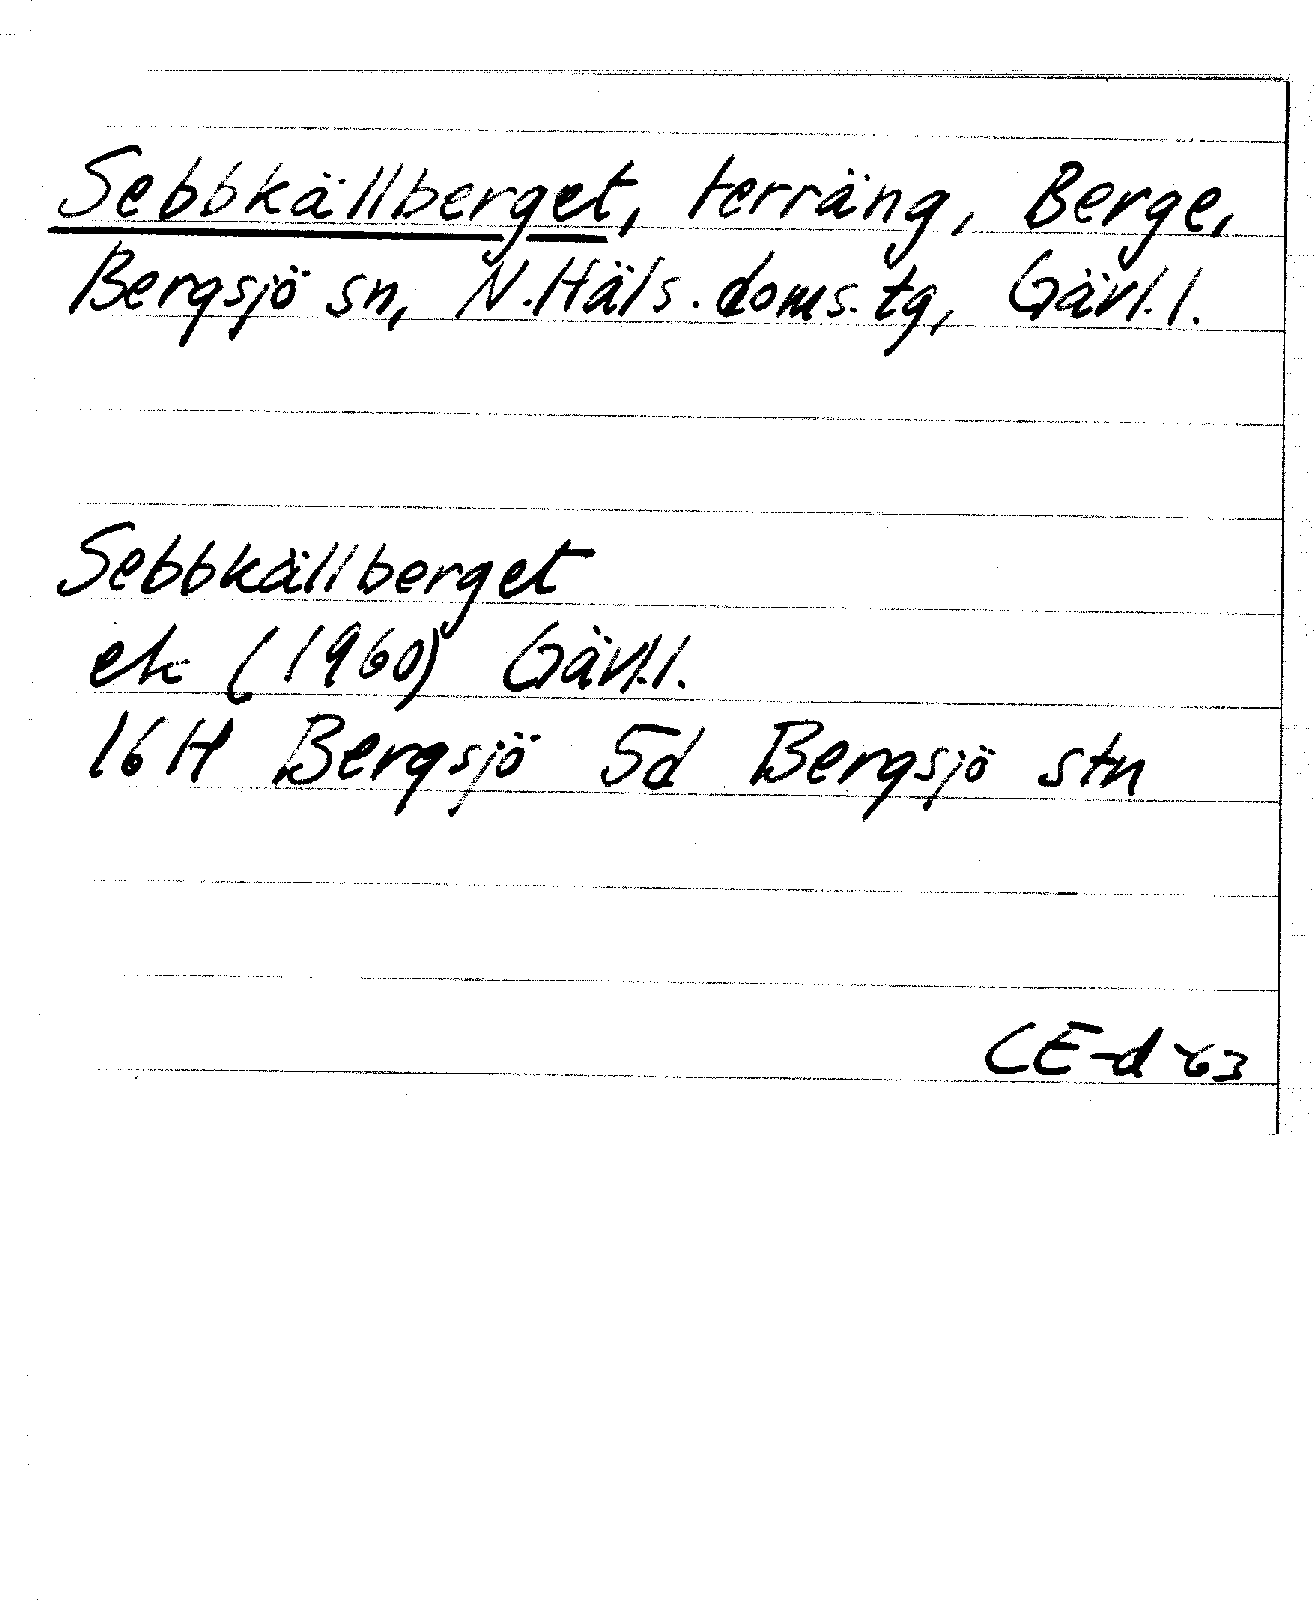 Sebbkällberget, terräng, Berge,
Bergsjö sn, N.Häls.doms.tg, Gävl.l.
Sebbkällberget
ek (1960) Gävl.l.
16H Bergsjö 5d Bergsjö stn
CE-d 63